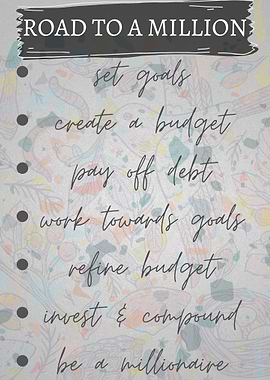 ROAD TO A MILLION
set goals
create a budget
pay off debt
work towards goals
refine budget
invest & compound
be a millionaire